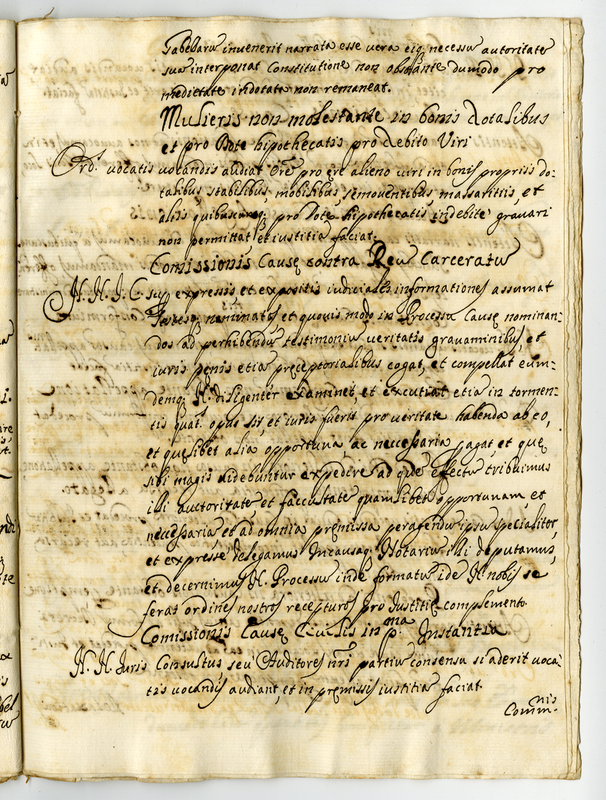 Tabellaru invenerit narrata esse vera eiq, necessu autoritate
sua interponat Constitutione non obstante dumodo pro
medietate indotate non remaneat.
Mulieris non molestante in bonis dotalibus
et pro Dote hipothecatis pro debito Viri
Ord. vocatis vocandis audiat Ore pro ęre alieno viri in bonis propriis do-
talibus stabilibus mobilibus semoventibus massaritiis, et
aliis quibuscuq, pro Dote hipothecatis indebite gravari
non permittat et iustitia faciat.
Comissionis Causę contra Reu Carceratu
N. N. I. C. sup expressis et expositis iudiciales informationes assumat
Testesq, nominatos et quovis modo in Processu Causę nominan-
dos ad perhibendu testimoniu veritatis gravaminibus, et
iuris penis etia pręceptorialibus cogat, et compellat eun-
demq, N. diligenter examinet, et excutiat etia in tormen-
tis quat. opus sit, et iuris fuerit pro veritate habenda ab eo,
et quęlibet alia opportuna ac necessaria pagat, et quę
sibi magis videbuntur expedire ad que effectu tribuimus
illi autoritate et faccustate quamlibet opportunam, et
necessaria et ad omnia pręmissa peragendu ipsu specialiter,
et expresse delegamus Incausaq, Notariu illi deputamus,
et decernimus N. Processu inde formatu ide N. nobis se
ferat ordines nostros recepturos pro Iustitię complemento
Comissionis Causę Civilis in p.ma Instantia
N. N. Iuris Consultus seu Auditores nri partiu consensu si aderit voca-
tis vocandis audiant, et in pręmissis iustitia faciat.
Comm.nis